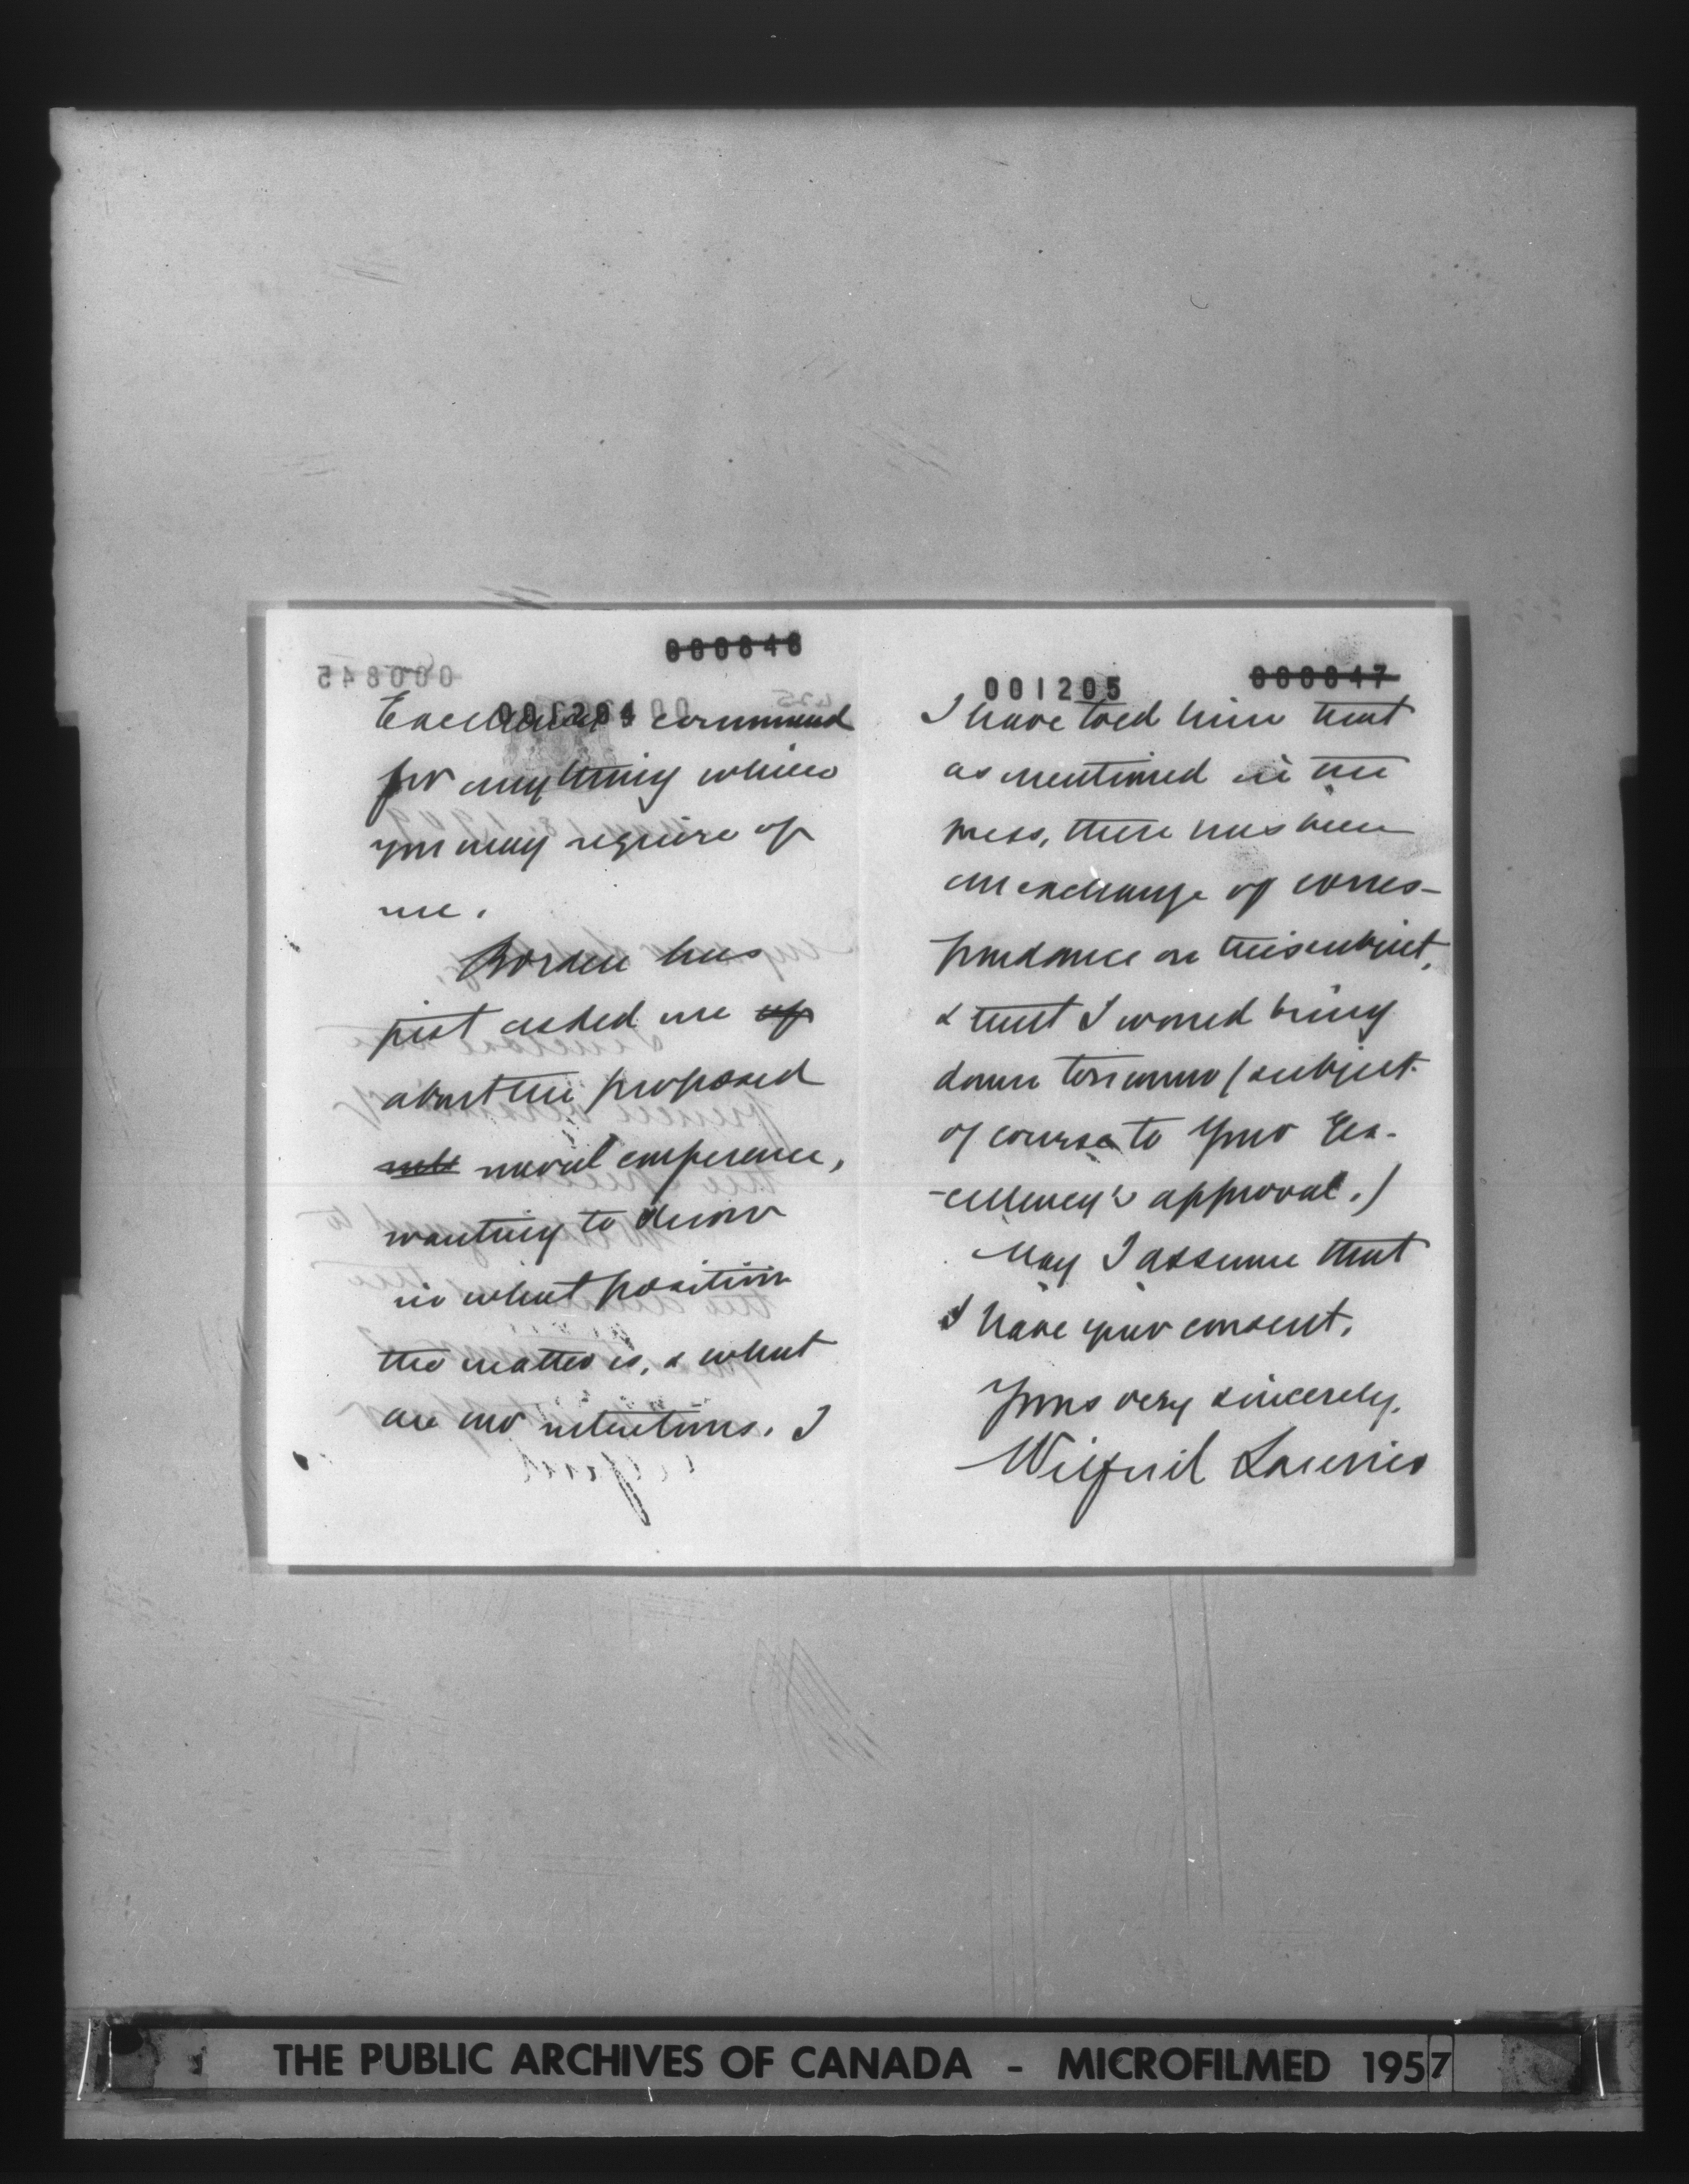 000846
001204
Excellency's command
for anything which
you may require of
me.
Borden has
just asked me up
about the proposed
naval conference,
wanting to know
in what position
the matter is, & what
are our intentions. I
001205
000847
I have told him that
as mentioned in the
press, there has been
an exchange of corres-
pondance on this subject,
& that I would bring
down tomorrow (subject
of course to your Ex-
-cellency's approval.)
May I assume that
I have your consent.
Yours very sincerely,
Wilfrid Laurier
THE PUBLIC ARCHIVES OF CANADA - MICROFILMED 1957